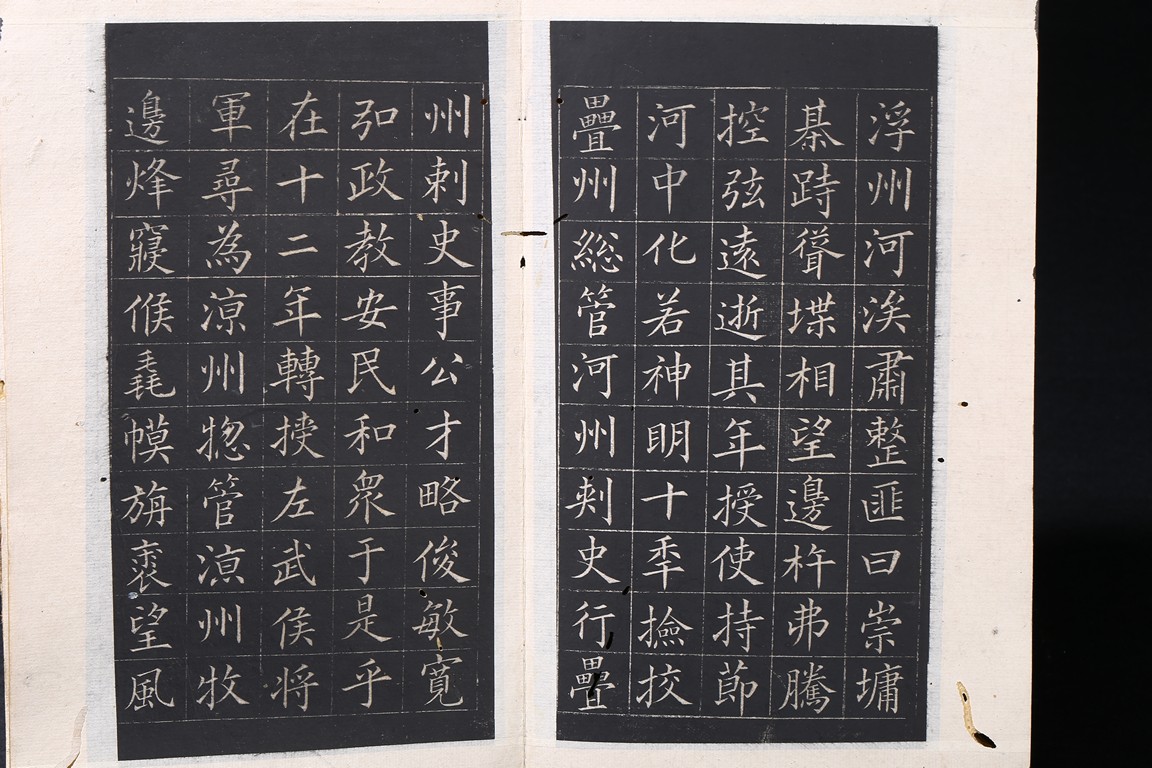 浮州河湙肅整匪曰崇墉
綦跱聳堞相望邊柝弗騰
控弦遠逝其年授使持莭
河中化若神明十秊撿挍
疊州総管河州刾史行疊
州刺史事公才略俊敏寛
弘政教安民和衆于是乎
在十二年轉授左武侯将
軍尋為涼州揔管涼州牧
邊烽寢候毳幙旃裘望風